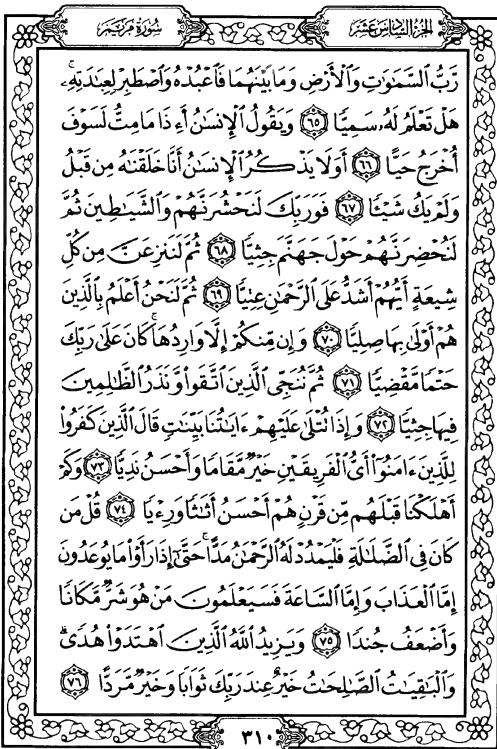 الجزء السادس عشر
سورة مريم
رَّبُّ السَّمَٰوَٰتِ وَالْأَرْضِ وَمَا بَيْنَهُمَا فَاعْبُدْهُ وَاصْطَبِرْ لِعِبَٰدَتِهِۦ ۚ
هَلْ تَعْلَمُ لَهُۥ سَمِيًّا ٦٥ وَيَقُولُ الْإِنسَٰنُ أَءِذَا مَا مِتُّ لَسَوْفَ
أُخْرَجُ حَيًّا ٦٦ أَوَلَا يَذْكُرُ الْإِنسَٰنُ أَنَّا خَلَقْنَٰهُ مِن قَبْلُ
وَلَمْ يَكُ شَيْـًٔا ٦٧ فَوَرَبِّكَ لَنَحْشُرَنَّهُمْ وَالشَّيَٰطِينَ ثُمَّ
لَنُحْضِرَنَّهُمْ حَوْلَ جَهَنَّمَ جِثِيًّا ٦٨ ثُمَّ لَنَنزِعَنَّ مِن كُلِّ
شِيعَةٍ أَيُّهُمْ أَشَدُّ عَلَى الرَّحْمَٰنِ عِتِيًّا ٦٩ ثُمَّ لَنَحْنُ أَعْلَمُ بِالَّذِينَ
هُمْ أَوْلَىٰ بِهَا صِلِيًّا ٧٠ وَإِن مِّنكُمْ إِلَّا وَارِدُهَا ۚ كَانَ عَلَىٰ رَبِّكَ
حَتْمًا مَّقْضِيًّا ٧١ ثُمَّ نُنَجِّى الَّذِينَ اتَّقَوا۟ وَّنَذَرُ الظَّٰلِمِينَ
فِيهَا جِثِيًّا ٧٢ وَإِذَا تُتْلَىٰ عَلَيْهِمْ ءَايَٰتُنَا بَيِّنَٰتٍ قَالَ الَّذِينَ كَفَرُوا۟
لِلَّذِينَ ءَامَنُوٓا۟ أَىُّ الْفَرِيقَيْنِ خَيْرٌ مَّقَامًا وَأَحْسَنُ نَدِيًّا ٧٣ وَكَمْ
أَهْلَكْنَا قَبْلَهُم مِّن قَرْنٍ هُمْ أَحْسَنُ أَثَٰثًا وَرِءْيًا ٧٤ قُلْ مَن
كَانَ فِى الضَّلَٰلَةِ فَلْيَمْدُدْ لَهُ الرَّحْمَٰنُ مَدًّا ۚ حَتَّىٰٓ إِذَا رَأَوْا۟ مَا يُوعَدُونَ
إِمَّا الْعَذَابَ وَإِمَّا السَّاعَةَ فَسَيَعْلَمُونَ مَنْ هُوَ شَرٌّ مَّكَانًا
وَأَضْعَفُ جُندًا ٧٥ وَيَزِيدُ اللَّهُ الَّذِينَ اهْتَدَوْا۟ هُدًى ۗ
وَالْبَٰقِيَٰتُ الصَّٰلِحَٰتُ خَيْرٌ عِندَ رَبِّكَ ثَوَابًا وَخَيْرٌ مَّرَدًّا ٧٦
٣١٠